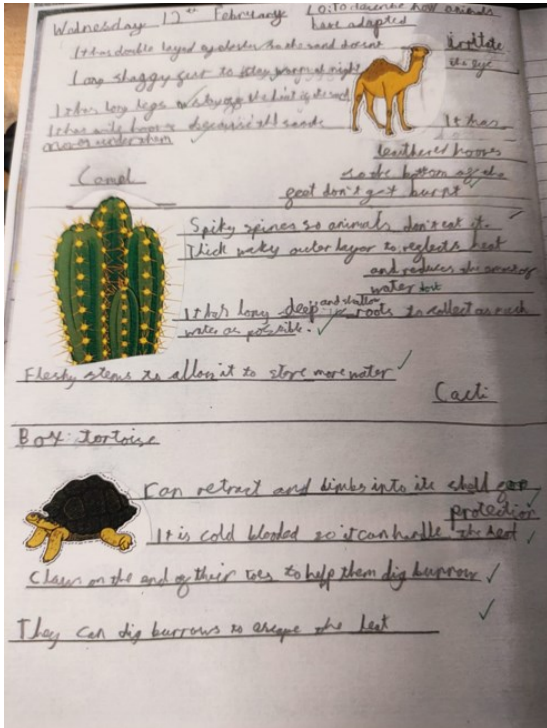 Wednesday 12th February L.O: To describe how animals
have adapted
It has double layed eyelashes so the sand doesnt irritate
the eye
Long shaggy fur to stay warm at night
It has long legs to stay off the heat of the sand
It has wide hooves
It has
leathered hooves
so the bottom of the
feet don't get burnt
Camel
Spiky spines so animals don't eat it.
Thick waky outer layer to reglects heat
and reduces the amount of
water lost
It has long deep and shallow roots to collect as much
water as possible.
Fleshy stems to allow it to store more water
Cacti
Box tortoise
Can retract and limbs into its shell for
protection
It is cold blooded so it can handle the heat
Claws on the end of their toes to help them dig burrow
They can dig burrows to escape the heat